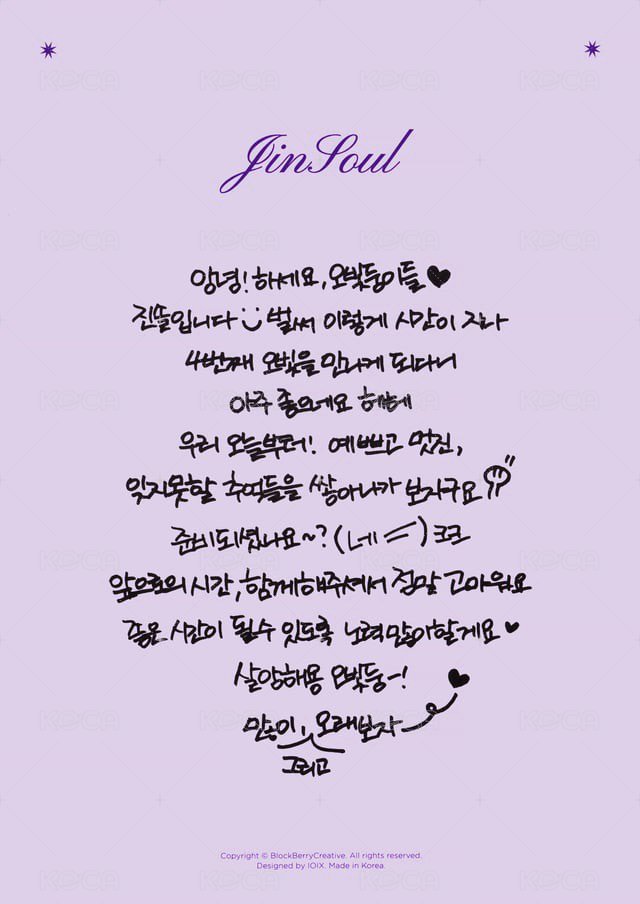 JinSoul
안녕!하세요, 오빛둥이들♥
진쏠입니다 벌써 이렇게 시간이 지나
4번째 오빛을 만나게 되다니
아주 좋으네요 헤헤
우리 오늘부터! 예쁘고 멋진,
잊지못할 추억들을 쌓아나가 보자구요
준비되셨나요~? (네 =) ㅋㅋ
앞으로의 시간, 함께해주셔서 정말 고마워요
좋은 시간이 될수 있도록 노력많이할게요♥
살앙해용 오빛둥-!
많이, 오래보자
그리고
Copyright © BlockBerryCreative. All rights reserved.
Designed by IOIX. Made in Korea.
KOCA